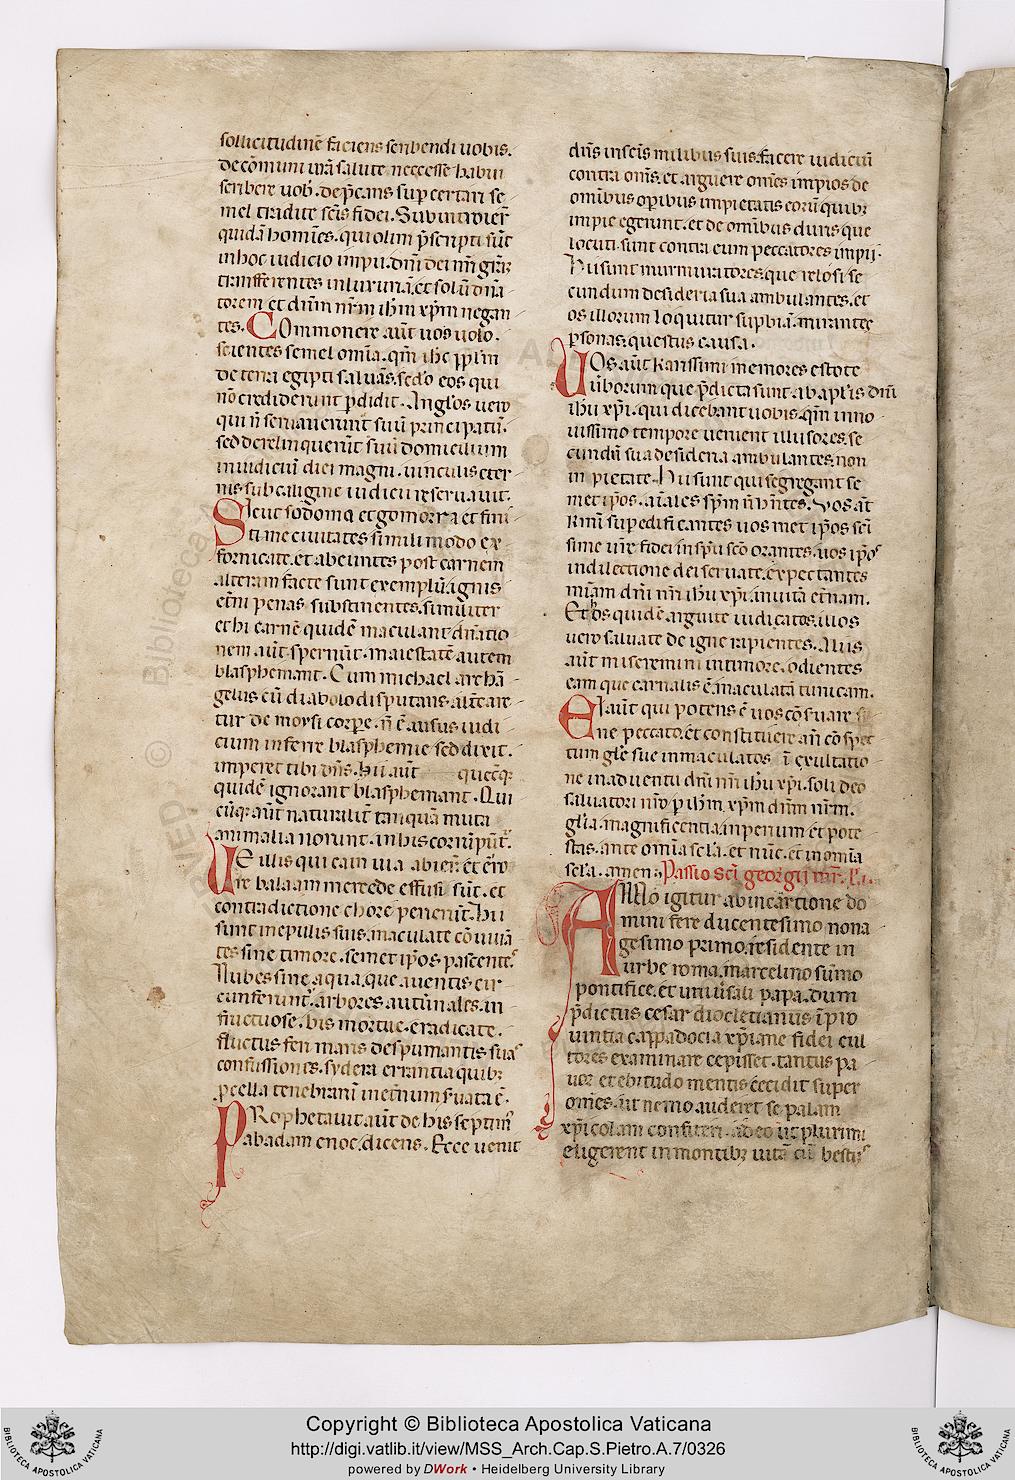 sollicitudinē faciens scribendi uobis.
de cōmuni ura salute neccesse habui
scribere uob. dep̄cans sup certari se
mel tradite scis fidei. Subintroier
quidā homines. qui olim p̄scripti sūt
in hoc iudicio impii. dni dei nri grām
transferentes in luxuriā. et solū dnā
torem et dnm nrm ihm xpm negan
tes. Commonere aūt uos uolo.
scientes semel omia. qm ihc pplm
de terra egipti saluās. scdo eos qui
nō crediderunt pdidit. Anglos uero
qui n̄ seruauerunt suū principatū.
sed derelinquerūt suū domicilium
in iudiciū diei magni. uinculis eter
nis sub caligine iudicii reseruauit.
Sicut sodoma et gomorra et fini
time ciuitates simili modo ex
fornicate. et abeuntes post carnem
alteram facte sunt exemplū. ignis
etni penas substinentes. similiter
et hi carnē quidē maculant. dnatio
nem aūt spernūt. maiestatē autem
blasphemant. Cum michael archā
gelus cū diabolo disputans altcare
tur de moysi corpe. n̄ ē ausus iudi
cium inferre blasphemie sed dixit.
imperet tibi dns. hii aūt quecq;
quidē ignorant blasphemant. Qui
cūq; aūt naturalit tanquā muta
animalia norunt. in his corrūpūt.
Ue illis qui cain uia abier. et erro
re balaam mercede effusi sūt. et
contradictione chore perierūt. hii
sunt in epulis suis. maculate cōuiuā
tes sine timore. semet ipos pascentes
Nubes sine aqua. que a uentis cir
cunferunt. arbores autūnales. in
fructuose. bis mortue. eradicate.
fluctus feri maris despumantis suas
confussiones. sydera errantia quibz
pcella tenebrarū in etnum seruata ē.
Prophetauit aūt de his septim
ab adam enoc. dicens. Ecce uenit
dns in scis milibus suis. facere iudiciū
contra oms. et arguere omes impios de
omibus opibus impietatis eorū quibz
impie egerunt. et de omibus duris que
locuti sunt contra eum peccatores impii.
Hii sunt murmuratores. querelosi se
cundum desideria sua ambulantes. et
os illorum loquitur supbiā. mirantes
psonas. questus causa.
Uos aūt karissimi memores estote
uborum que p̄dicta sunt. ab aplis dni
ihu xpi. qui dicebant uobis. qm inno
uissimo tempore uenient illusores. se
cundū sua desideria ambulantes. non
in pietate. hii sunt qui segregant se
met ipos. aīales spm n̄ hntes. Uos aūt
kmi supedificantes uos met ipos scī
sime ure fidei in spu sco orantes. uos ipos
in dilectione dei seruate. expectantes
miam dni nri ihu xpi. in uitā etnam.
Et hos quidē arguite iudicatos. illos
uero saluate de igne rapientes. Aliis
aūt miseremini in timore. odientes
eam que carnalis ē maculatā tunicam.
Ei aūt qui potens ē uos cōseruare si
ne peccato. et constituere an cōspec
tum glē sue inmaculatos in exultatio
ne in aduentu dni nri ihu xpi. soli deo
saluatori nro p ihm xpm dnm nrm.
glia. magnificentia. inperium et pote
stas. ante omia scla. et nūc. et in omia
scla. amen. Passio sci georgii mr. l. i.
Anno igitur ab incartione do
mini fere ducentesimo nona
gesimo primo. residente in
urbe roma. marcelino sūmo
pontifice. et uniusali papa. dum
p̄dictus cesar diocletianus ī pro
uintia cappadocia xpiane fidei cul
tores examinare cepisset. tantus pa
uor et ebitudo mentis cecidit super
omes. ut nemo auderet se palam
xpicolam confiteri. adeo ut plurimi
eligerent in montibz uitā cū bestiis
Copyright © Biblioteca Apostolica Vaticana
http://digi.vatlib.it/view/MSS_Arch.Cap.S.Pietro.A.7/0326
powered by DWork • Heidelberg University Library
BIBLIOTECA APOSTOLICA VATICANA
BIBLIOTECA APOSTOLICA VATICANA